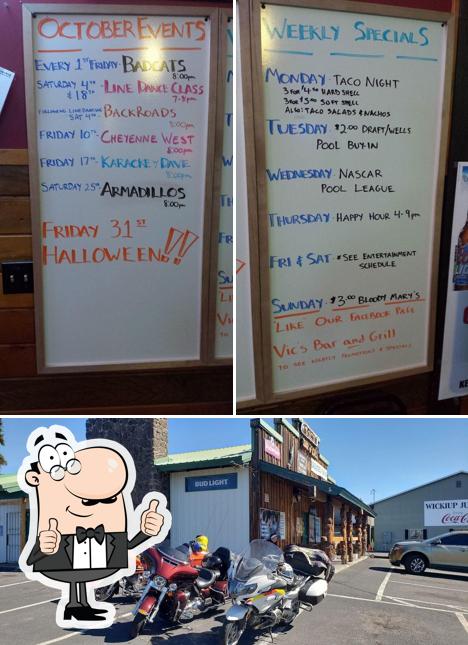 October Events
Every 1st Friday - Badcats
8:00pm
Saturday 4th - Line Dance Class
& 18th
7-8pm
Following Line Dancing
Sat 4th - BackRoads
8:00pm
Friday 10th - Cheyenne West
8:00pm
Friday 17th - Karaoke Dave
8:00pm
Saturday 25th Armadillos
8:00pm
Friday 31st
Halloween!!
Weekly Specials
Monday - Taco Night
3 for $4.00 Hard Shell
3 for $5.00 Soft Shell
Also: Taco Salads & Nachos
Tuesday - $2.00 Draft/Wells
Pool Buy-In
Wednesday - Nascar
Pool League
Thursday - Happy Hour 4-9pm
Fri & Sat - *See Entertainment
Schedule
Sunday - $3.00 Bloody Mary's
"Like" Our Facebook Page
Vic's Bar and Grill
to see nightly promotions & specials
BUD LIGHT
WICKIUP JU
Coca-C